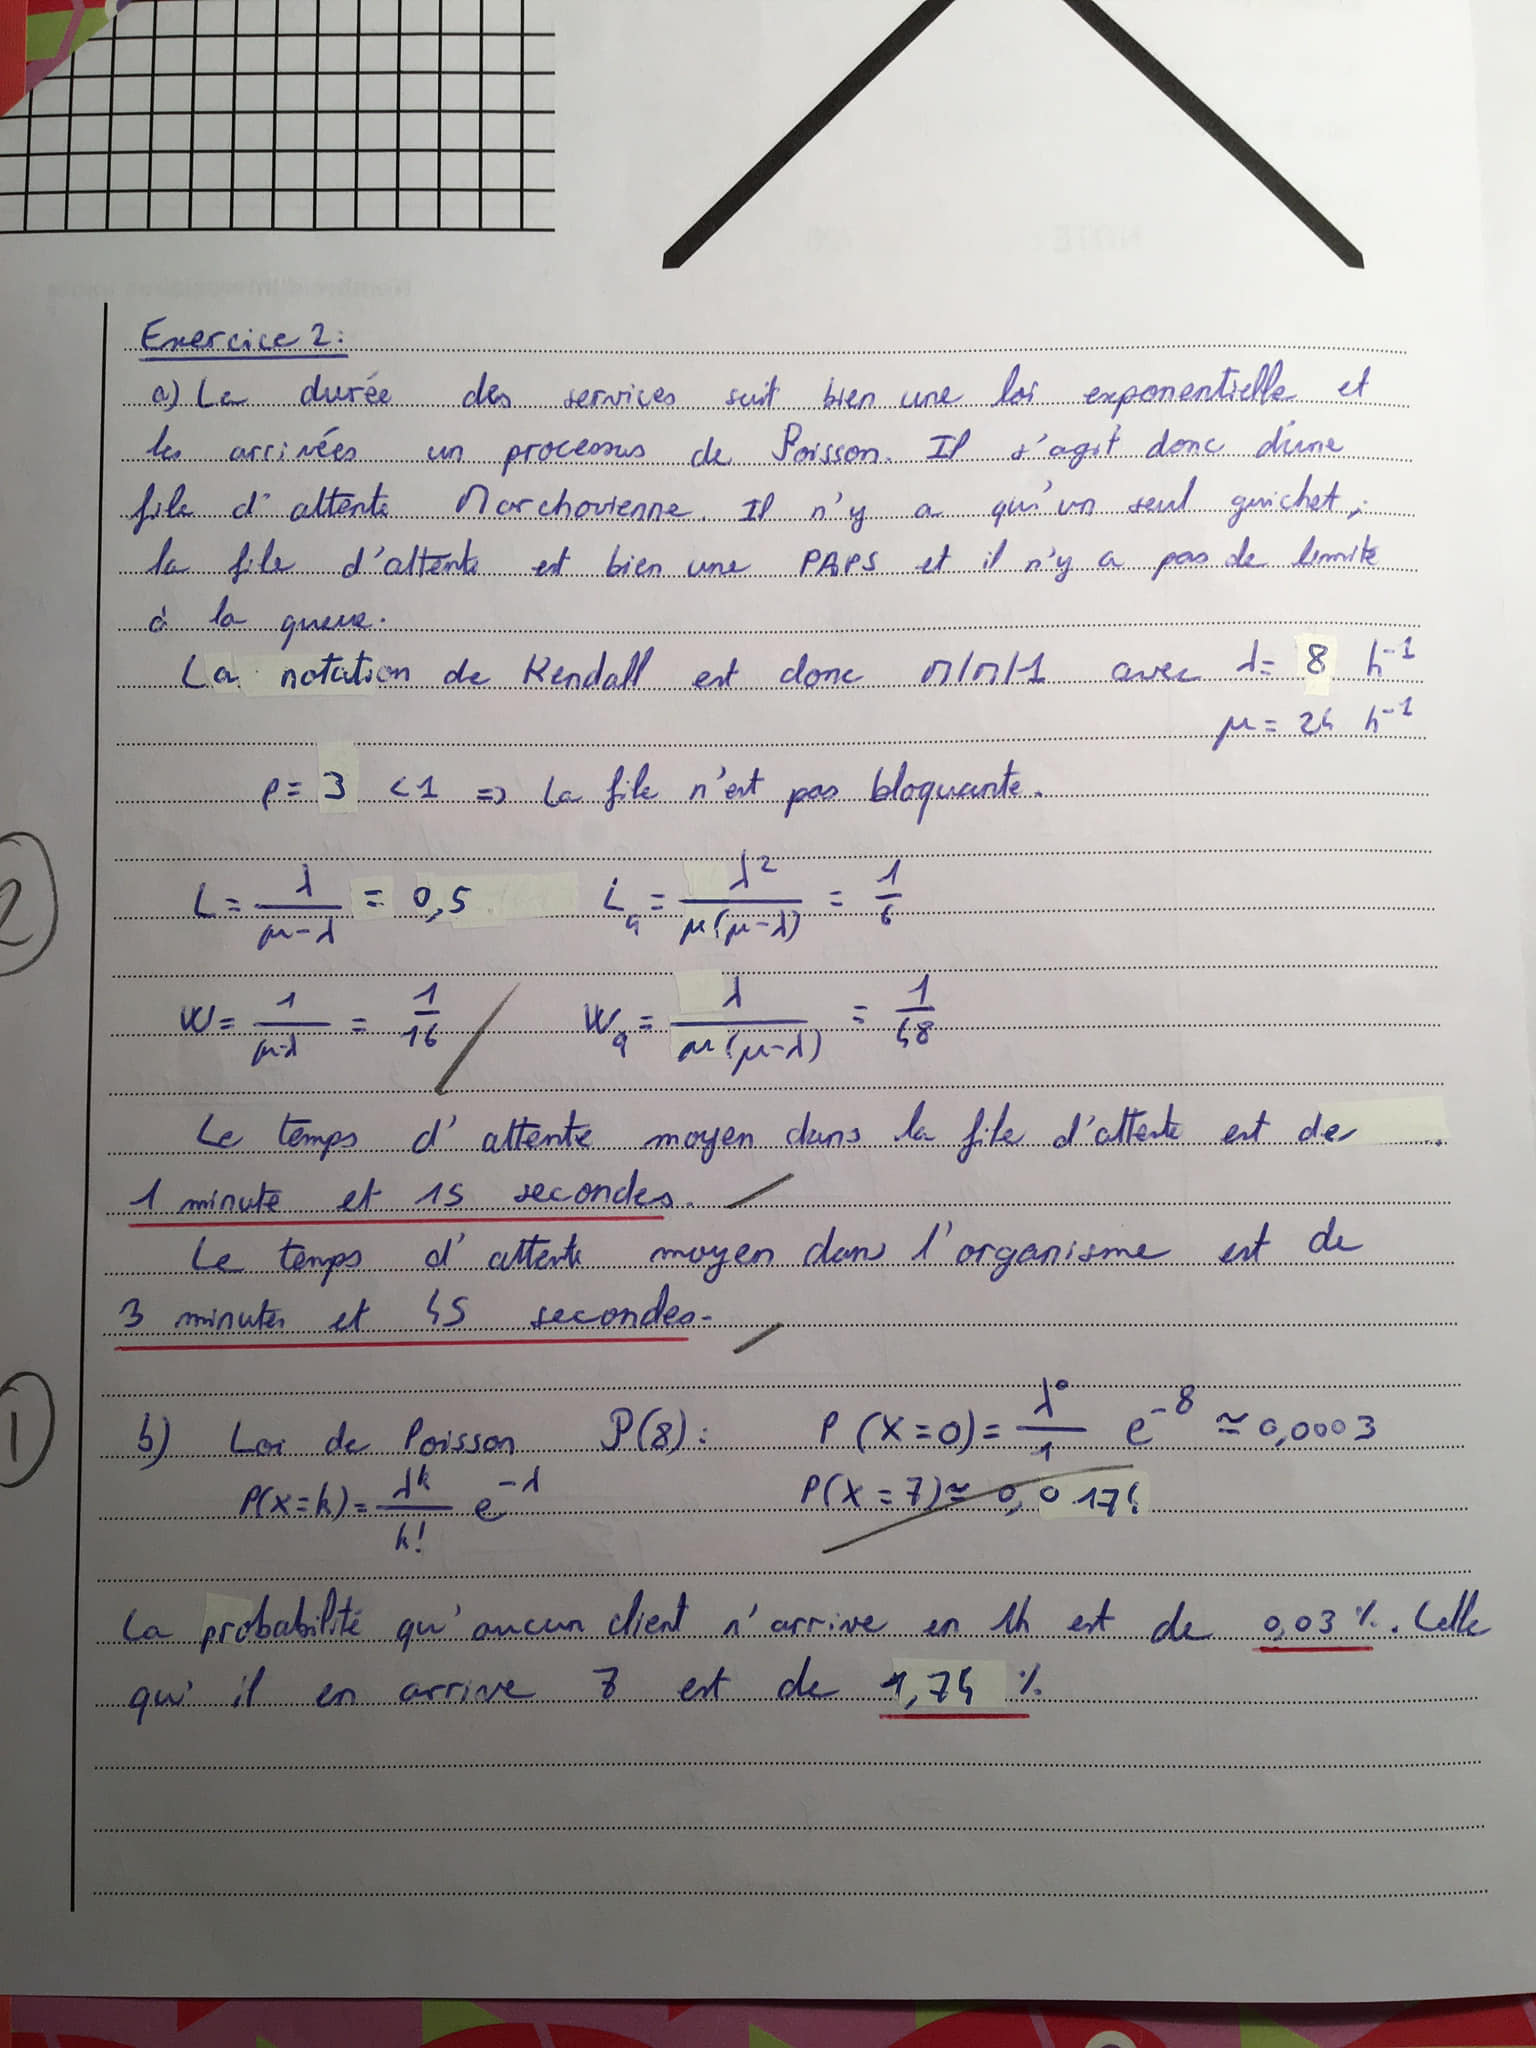 Exercice 2:
a) La durée des services suit bien une loi exponentielle et
les arrivées un processus de Poisson. Il s'agit donc d'une
file d'attente Marchovienne. Il n'y a qu'un seul guichet,
la file d'attente est bien une PAPS et il n'y a pas de limite
à la queue.
La notation de Kendall est donc M/M/1 avec λ= 8 h⁻¹
μ= 24 h⁻¹
ρ= 3 <1 => La file n'est pas bloquante.
2
L= λ/(μ-λ) = 0,5 Lq = λ²/(μ(μ-λ)) = 1/6
W= 1/(μ-λ) = 1/16 Wq = λ/(μ(μ-λ)) = 1/48
Le temps d'attente moyen dans la file d'attente est de
1 minute et 15 secondes.
Le temps d'attente moyen dans l'organisme est de
3 minutes et 45 secondes.
1
b) Loi de Poisson P(8): P(X=0)= λ⁰/1 e⁻⁸ ≃ 0,0003
P(X=k)= λᵏ/k! e^-λ P(X=7)≃ 0,0174
La probabilité qu'aucun client n'arrive en 1h est de 0,03%. Celle
qu'il en arrive 7 est de 1,74 %